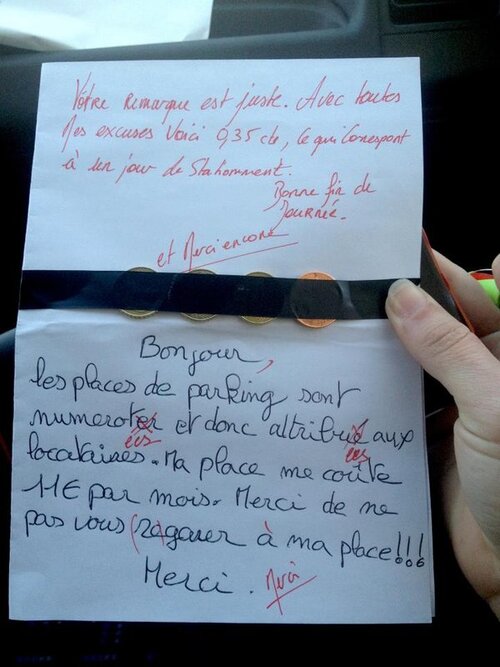 Votre remarque est juste. Avec toutes
Mes excuses Voici 0,35 cts, ce qui Correspont
à un jour de Stationnment.
Bonne fin de
Journée.
et Merci encore
Bonjour,
les places de parking sont
numeroter et donc attribué aux
ées ées
locataires. Ma place me coûte
11€ par mois. Merci de ne
pas vous (re)garer à ma place!!!
Merci. Merci